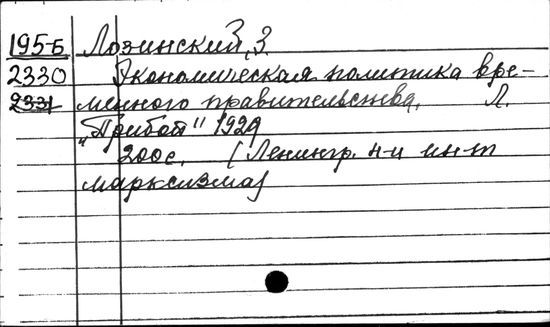 1955 Лозинский, З.
2330 Экономическая политика вре-
2331 менного правительства. Л.
„Прибой" 1929
200с. (Ленингр. н-и ин-т
марксизма)